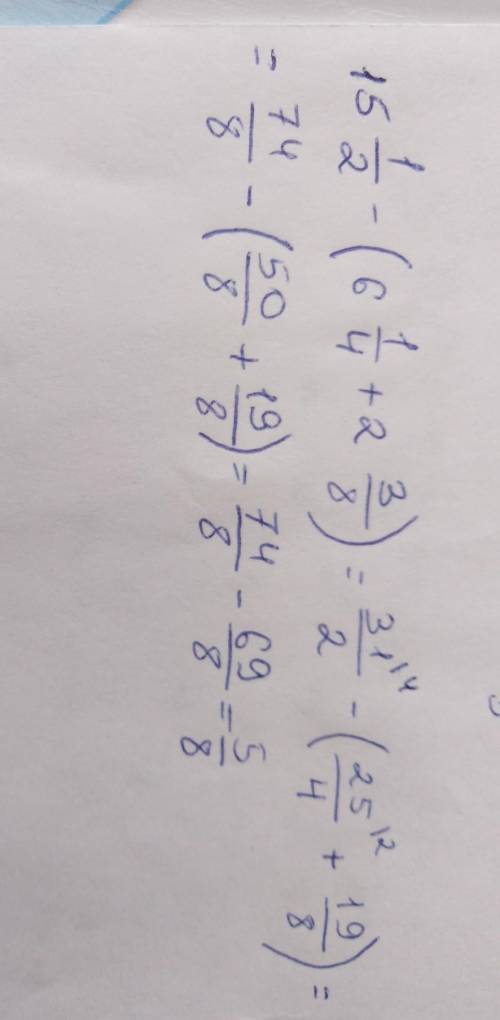 15 1/2 - (6 1/4 + 2 3/8) = 31\4/2 - (25\2/4 + 19/8) =
= 74/8 - (50/8 + 19/8) = 74/8 - 69/8 = 5/8